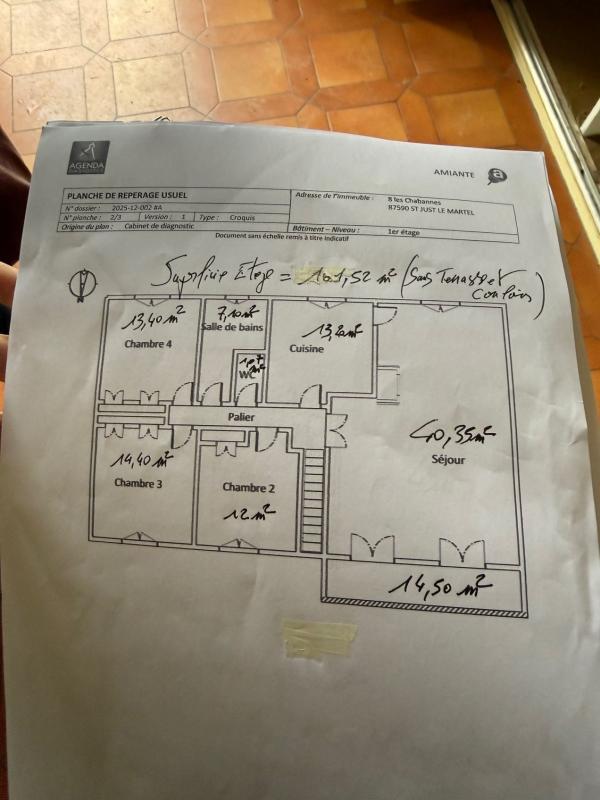 AGENDA
AMIANTE a
PLANCHE DE REPERAGE USUEL
N° dossier : 2025-12-002 #A
N° planche : 2/3 Version : 1 Type : Croquis
Origine du plan : Cabinet de diagnostic
Adresse de l'immeuble : 8 les Chabannes
87590 ST JUST LE MARTEL
Bâtiment – Niveau : 1er étage
Document sans échelle remis à titre indicatif
Superficie Etage = 101,52 m² (Sans Terrasse et
Couloirs)
N
13,40 m²
Chambre 4
7,10 m²
Salle de bains
1,07 m²
WC
13,20 m²
Cuisine
Palier
40,35 m²
Séjour
14,40 m²
Chambre 3
Chambre 2
12 m²
14,50 m²